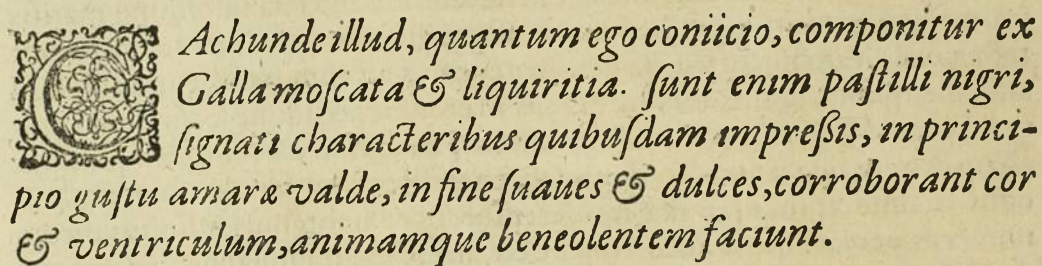 CAchunde illud, quantum ego coniicio, componitur ex
Galla moſcata & liquiritia. ſunt enim paſtilli nigri,
ſignati characteribus quibuſdam impreſſis, in princi-
pio guſtu amaræ valde, in fine ſuaues & dulces, corroborant cor
& ventriculum, animamque beneolentem faciunt.